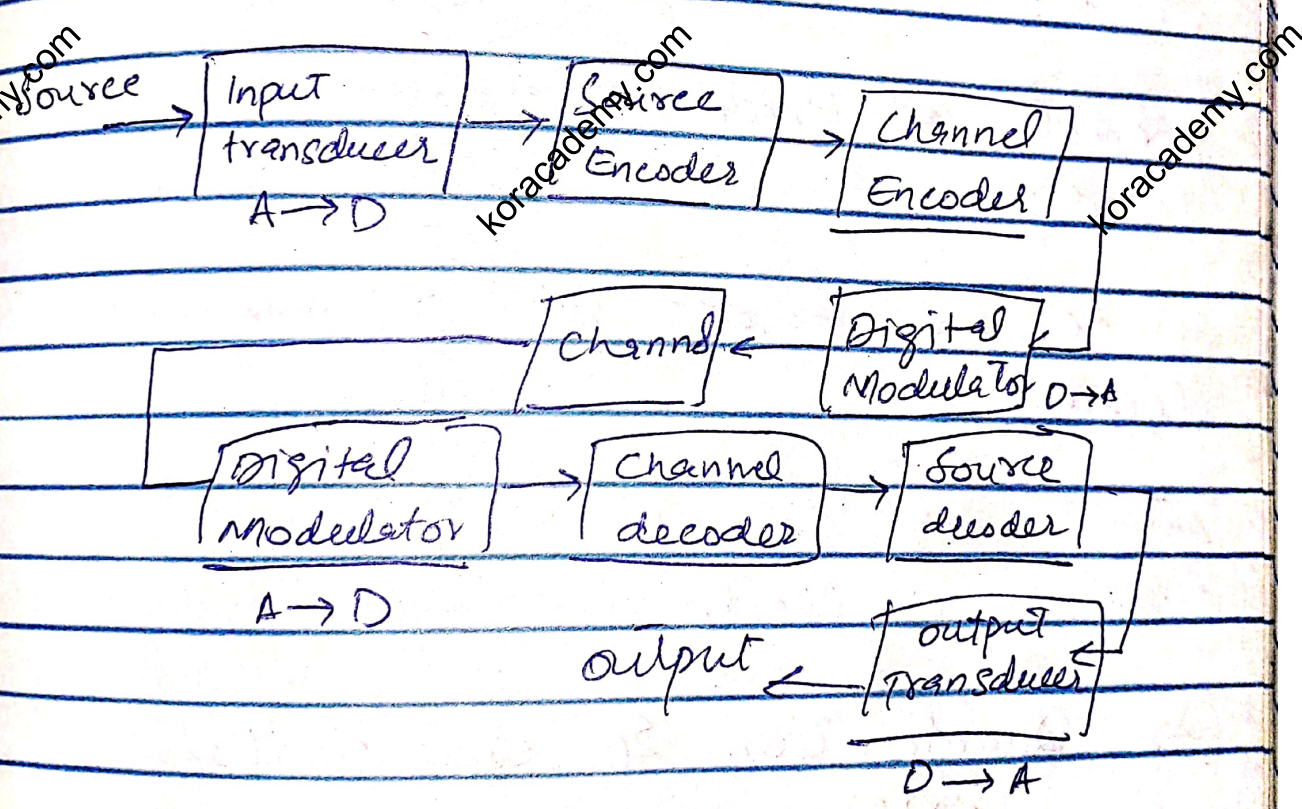 Source
Input
transducer
A → D
Source
Encoder
Channel
Encoder
Digital
Modulator
D → A
Channel
Digital
Modulator
A → D
Channel
decoder
Source
decoder
output
Transducer
D → A
output
ny.com
koracademy.com
koracademy.com